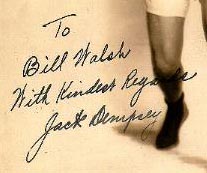 To
Bill Walsh
With Kindest Regards
Jack Dempsey